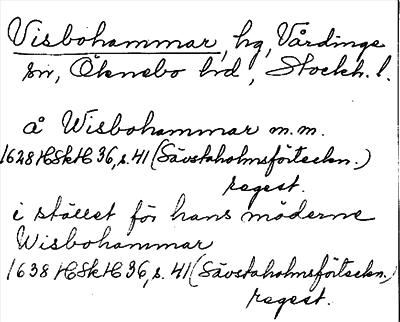 Visbohammar, hg, Vårdinge
sn, Öknebo hd, Stockh. l.
å Wisbohammar m.m.
1628 HSkH 36, s. 41 (Sävstaholmsförteckn.)
regest.
i stället för hans möderne
Wisbohammar
1638 HSkH 36, s. 41 (Sävstaholmsförteckn.)
regest.